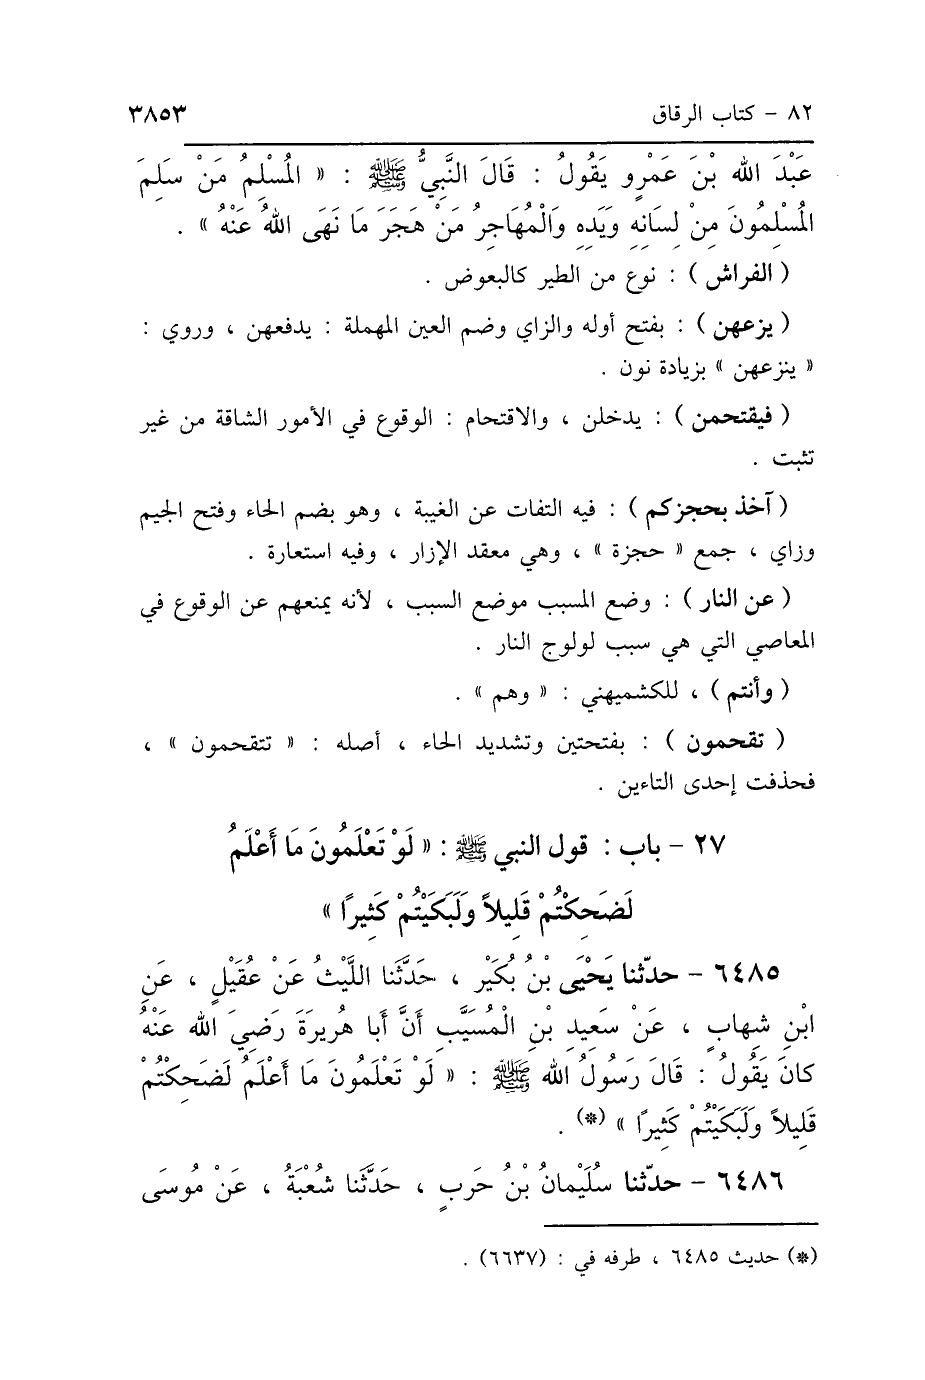 ٨٢ - كتاب الرقاق ٣٨٥٣
عَبْدَ الله بْنَ عَمْرٍو يَقُولُ : قَالَ النَّبِيُّ ﷺ : « الْمُسْلِمُ مَنْ سَلِمَ
الْمُسْلِمُونَ مِنْ لِسَانِهِ وَيَدِهِ وَالْمُهَاجِرُ مَنْ هَجَرَ مَا نَهَى اللهُ عَنْهُ » .
( الفراش ) : نوع من الطير كالبعوض .
( يزعهن ) : بفتح أوله والزاي وضم العين المهملة : يدفعهن ، وروي :
« ينزعهن » بزيادة نون .
( فيقتحمن ) : يدخلن ، والاقتحام : الوقوع في الأمور الشاقة من غير
تثبت .
( آخذ بحجزكم ) : فيه التفات عن الغيبة ، وهو بضم الحاء وفتح الجيم
وزاي ، جمع « حجزة » ، وهي معقد الإزار ، وفيه استعارة .
( عن النار ) : وضع المسبب موضع السبب ، لأنه يمنعهم عن الوقوع في
المعاصي التي هي سبب لولوج النار .
( وأنتم ) ، للكشميهني : « وهم » .
( تقحمون ) : بفتحتين وتشديد الحاء ، أصله : « تتقحمون » ،
فحذفت إحدى التاءين .
٢٧ - باب : قول النبي ﷺ : « لَوْ تَعْلَمُونَ مَا أَعْلَمُ
لَضَحِكْتُمْ قَلِيلاً وَلَبَكَيْتُمْ كَثِيرًا »
٦٤٨٥ - حدّثنا يَحْيَى بْنُ بُكَيْر ، حَدَّثَنا اللَّيْثُ عَنْ عُقَيْلٍ ، عَنِ
ابْنِ شِهابٍ ، عَنْ سَعِيدِ بْنِ الْمُسَيَّبِ أَنَّ أَبا هُرِيرَةَ رَضِيَ الله عَنْهُ
كانَ يَقُولُ : قَالَ رَسُولُ الله ﷺ : « لَوْ تَعْلَمُونَ مَا أَعْلَمُ لَضَحِكْتُمْ
قَلِيلاً وَلَبَكَيْتُمْ كَثِيرًا » (*) .
٦٤٨٦ - حدّثنا سُلَيْمانُ بْنُ حَربٍ ، حَدَّثَنا شُعْبَةُ ، عَنْ مُوسَى
(*) حديث ٦٤٨٥ ، طرفه في : (٦٦٣٧) .